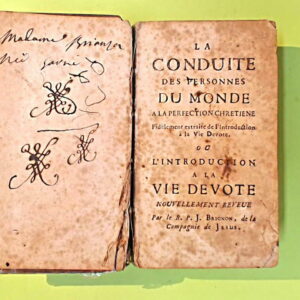 Madame
née
LA
CONDUITE
DES PERSONNES
DU MONDE
A LA PERFECTION CHRETIENE
Fidelement extraite de l'Introduction
à la Vie Devote.
OU
L'INTRODUCTION
A LA
VIE DEVOTE
NOUVELLEMENT REVEUE
Par le R. P. J. BRIGNON, de la
Compagnie de JESUS.